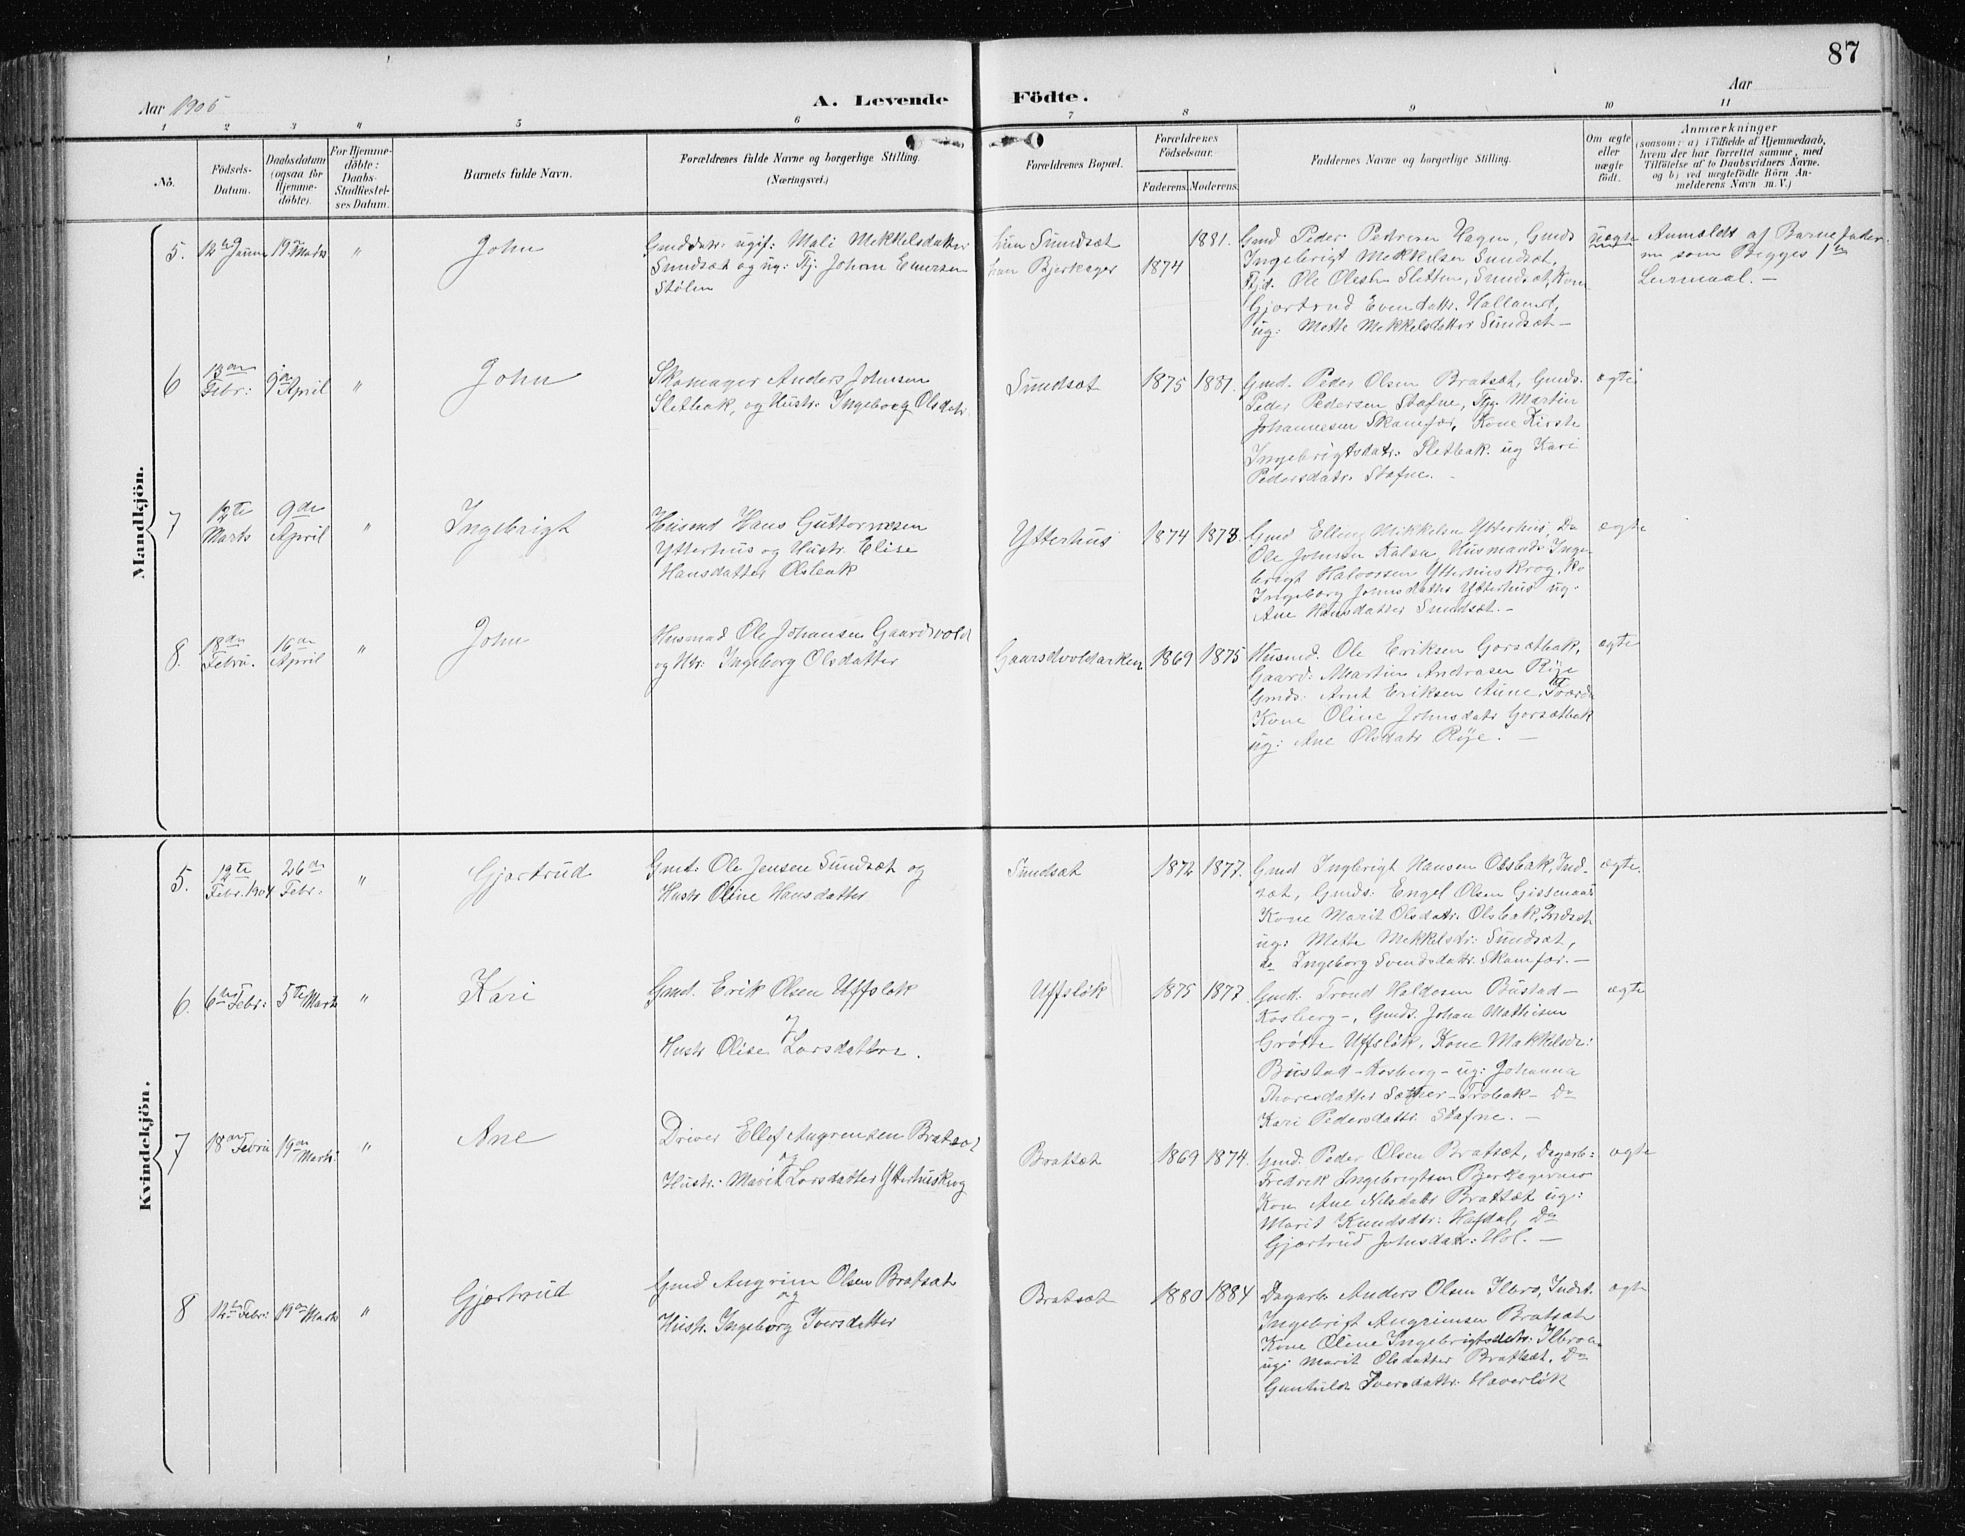 87
Aar 1905
A. Levende Födte.
Aar
1 2 3 " 5 6 7 8 9 10 11
No.
Födsels-
Datum.
Daabsdatum
(ogsaa for
Hjemme-
döbte).
For Hjemme-
döbte:
Daabs-
Stadfæstel-
ses Datum.
Barnets fulde Navn.
Forældrenes fulde Navne og borgerlige Stilling.
(Næringsvei.)
Forældrenes Bopæl.
Forældrenes
Födselsaar.
Faderens. Moderens.
Faddernes Navne og borgerlige Stilling.
Om ægte
eller
uægte
födt.
Anmærkninger
(saasom: a) i Tilfælde af Hjemmedaab,
hvem der har forrettet samme, med
Tilföielse af to Daabsvidners Navne.
og b) ved uægtefödte Börn An-
melderens Navn m. V.)
Mandkjön.
5. 12te Januar 19de Marts " John
Gmdsdatr: ugift: Mali Mekkelsdatter
Sundsæt og ug: Tj: Johan Einersen
Stølen
hun Sundsæt
han Bjerkager
1874 1881.
Gmd Peder Pedersen Hagen, Gmds
Ingebrigt Mekkelsen Sundsæt,
Tjd. Ole Olesen Sletten, Sundsæt, Kone
Gjertrud Evendattr. Halland,
ug: Mette Mekkelsdatter Sundsæt –
uægte
Anmeldt af Barnefader-
en som Begges 1ste
Leiermaal. –
6 13de Febr: 9de April " John
Skomager Anders Johnsen
Sletbak, og Hustr: Ingeborg Olsdatr.
Sundsæt
1875 1881.
Gmd. Peder Olsen Bratsæt, Gmds.
Peder Pedersen Stafne, Tjg. Martin
Johannesen Skamfær, Kone Kirsti
Ingebrigtsdatr: Sletbak. ug Kari
Pedersdatr. Stafne. –
ægte
7 12te Marts 9de April " Ingebrigt
Husmd Hans Guttormsen
Ytterhus og Hustr. Elise
Hansdatter Olsbak
Ytterhus
1874 1878.
Gmd Elling Mikkelsen Ytterhus, Do
Ole Johnsen Kalsen, Husmands Inge-
brigt Halvorsen Ytterhuskrog, Ko
Ingeborg Johnsdatter Ytterhus ug:
Ane Hansdatter Sundsæt. –
ægte
8. 18de Febru. 16de April " John
Husmad Ole Johansen Gaardsvold
og Htr: Ingeborg Olsdatter
Gaardsvoldarken
1869 1875
Husmd. Ole Eriksen Gorsætbak,
Gaard: Martin Andrasen Röe
Gmds. Arnt Eriksen Aune
Kone Oline Johnsdatr Gorsætbak
ug: Ane Olsdatr Röe. –
ægte
Kvindekjön.
5. 12te Febr. 1904 26de Febr. " Gjertrud
Gmd: Ole Jensen Sundsæt og
Hustr Oline Hansdatter
Sundsæt
1872 1877.
Gmd Ingbrigt Hansen Olsbak, Ind-
sæt, Gmds: Engel Olsen Gissenaas
Kone Marit Olsdatr. Olsbak, Indsæt
ug: Mette Mekkelsdr: Sundsæt,
do Ingeborg Svendsdatr. Skamfær. –
ægte.
6. 6te Febr: 5te Marts " Kari
Gmd. Erik Olsen Uffsløk
og
Hustr Olise Larsdatter.
Uffsløk
1875 1877.
Gmd. Trond Haldosen Bustad –
Kosberg –, Gmds. Johan Mathisen
Grøtte Uffsløk, Kone Makkelsdr:
Bustad – Kosberg – ug: Johanna
Thoresdatter Sæther – Trobak – Do
Kari Pedersdatr. Stafne. –
ægte
7 18de Febru 19de Marts " Ane
Driver Ellef Angrensen Bratset
og
Hustr: Marit Larsdatter Ytterhuskrog
Bratsæt
1869 1874.
Gmd. Peder Olsen Bratsæt, Dagarb:
Fredrik Ingebrigtsen Bjerkageren
Kone Ane Nilsdatr Bratsæt ug:
Marit Knudsdtr: Hafdal, Do
Gjertrud Johnsdatr: Hol. –
ægte
8 12te Febr: 19de Marts " Gjertrud
Gmd Angrim Olsen Bratsæt
og
Hustr. Ingeborg Iversdatter
Bratsæt
1880 1884
Dagarb. Anders Olsen Ilbro, Indst.
Ingebrigt Angrimsen Bratsæt
Kone Oline Ingebrigtsdatr: Ilbroen
ug: Marit Olsdatter Bratsæt, Do
Gunhild Iversdattr: Haverløk
ægte